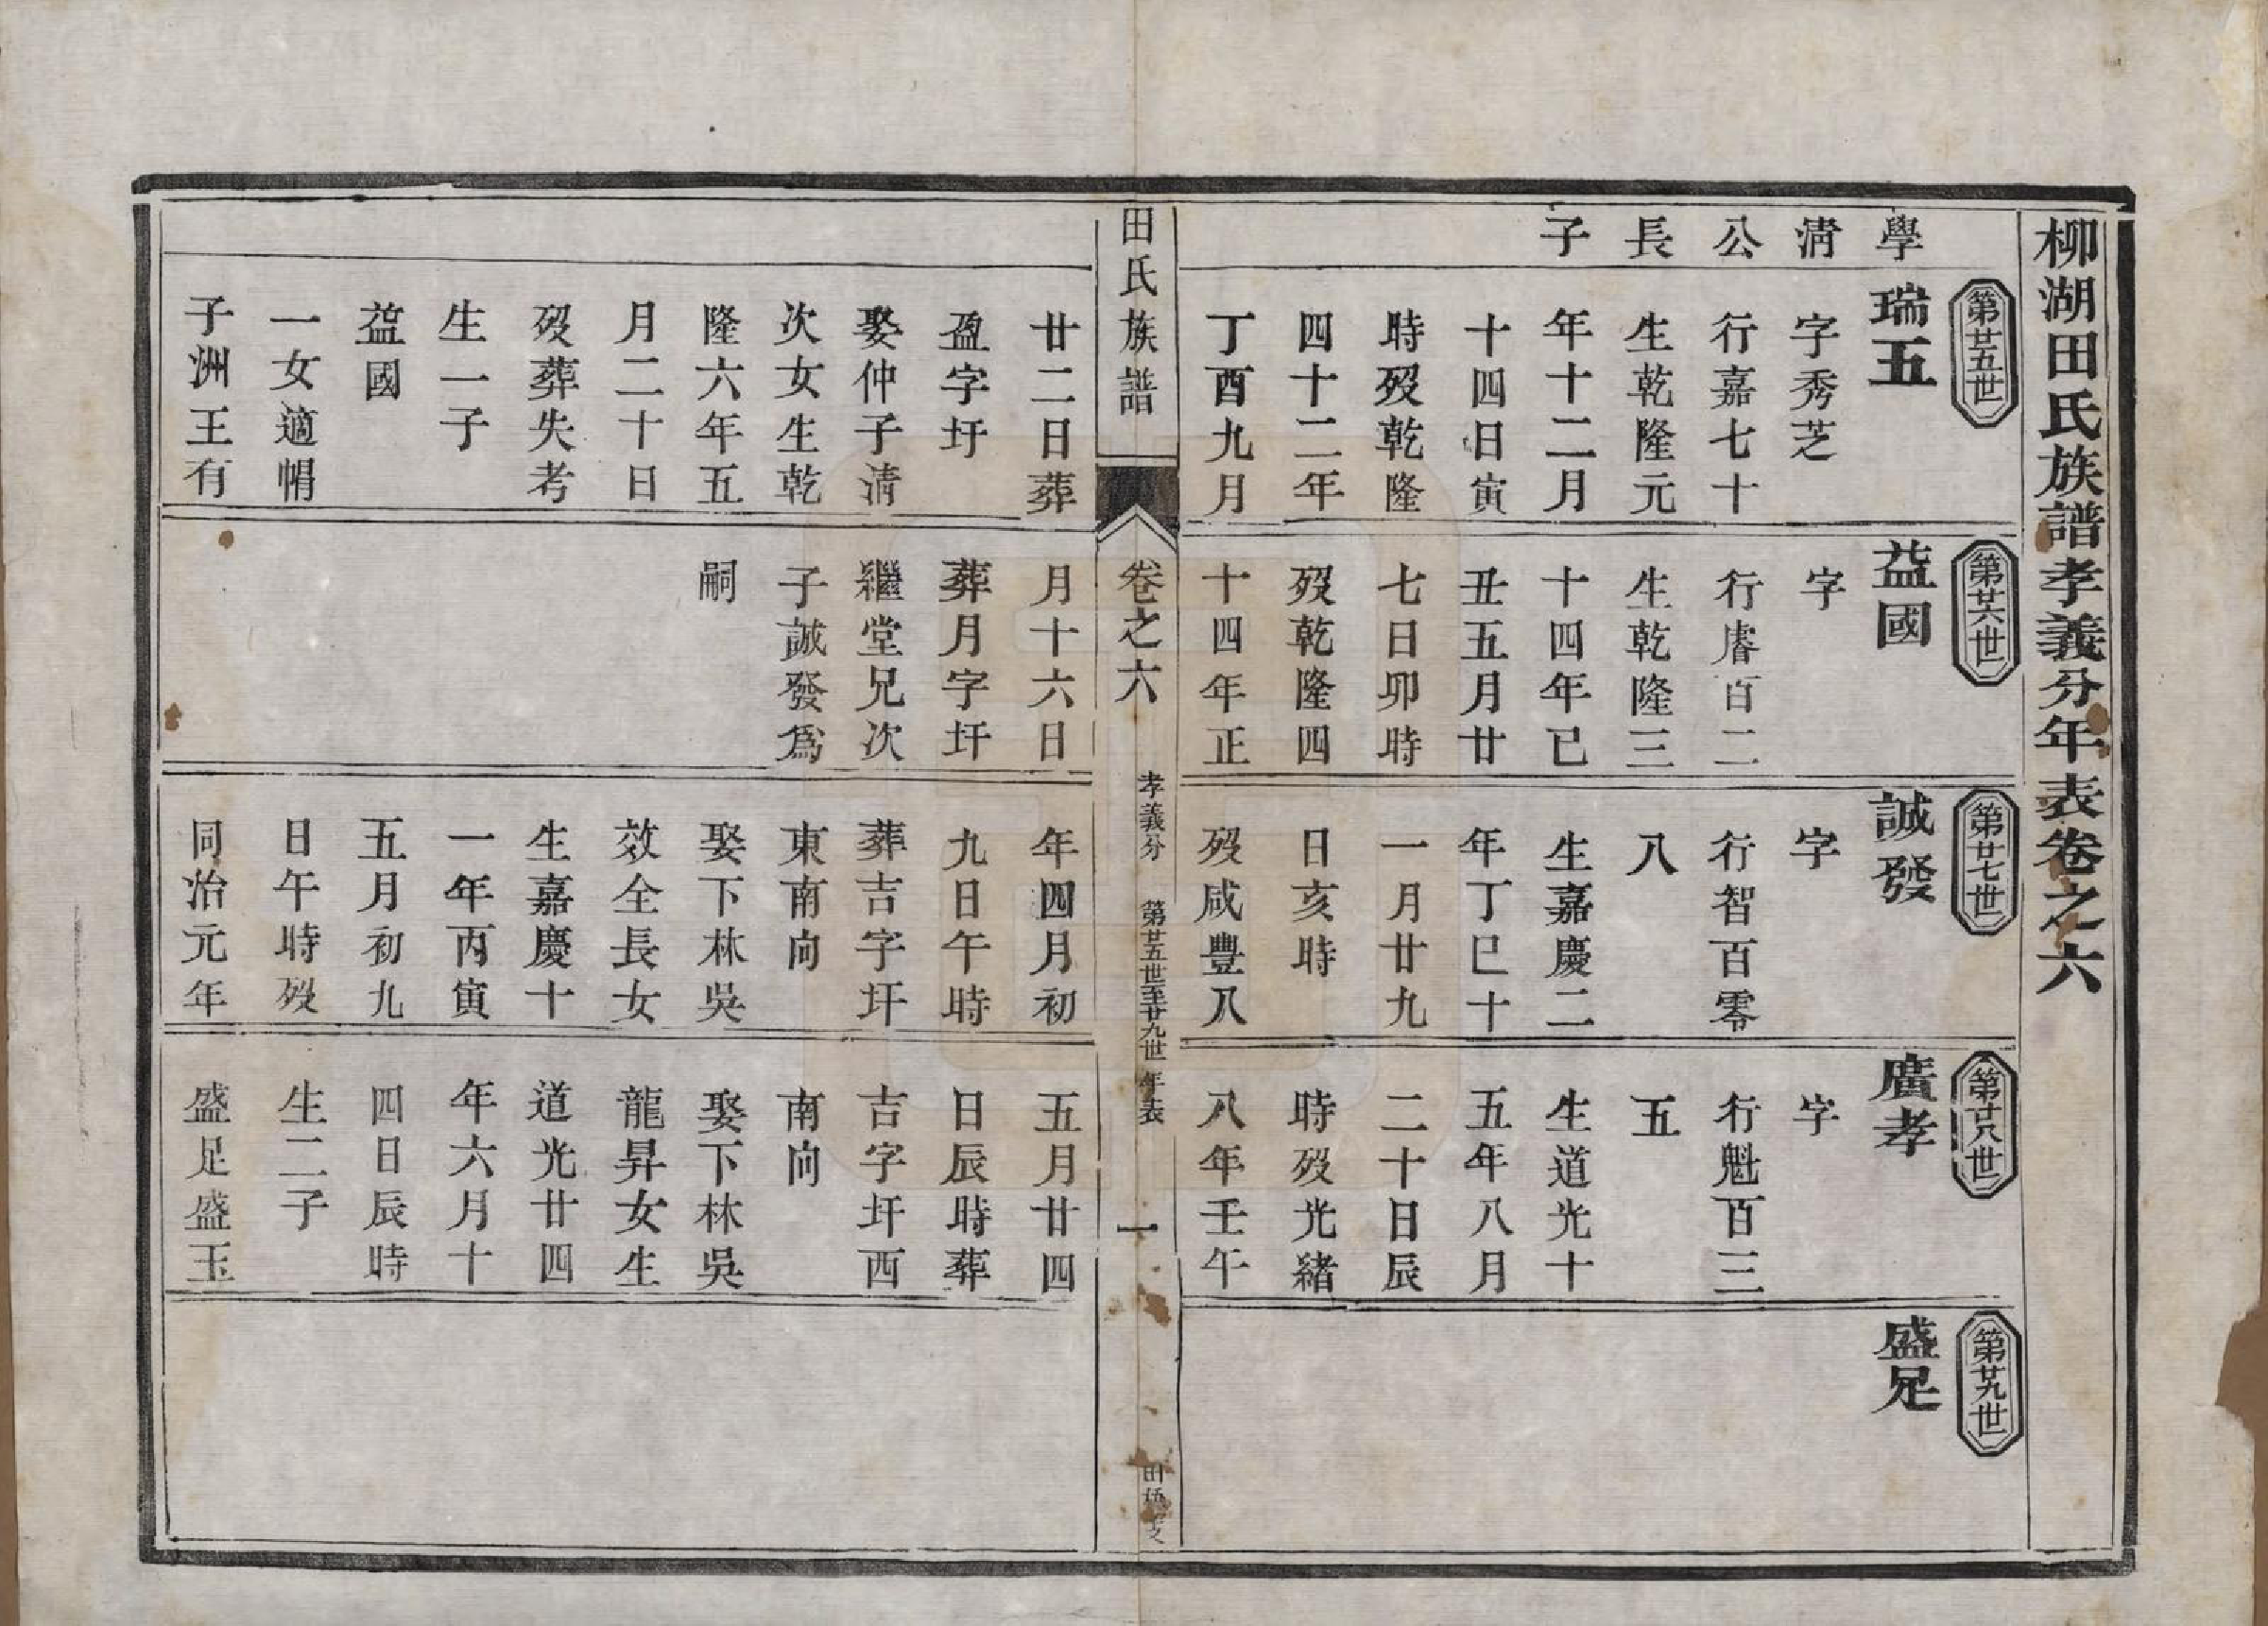 柳湖田氏族譜孝義分年表卷之六
學清公長子
第廿五世
瑞五
字秀芝
行嘉七十
生乾隆元
年十二月
十四日寅
時歿乾隆
四十二年
丁酉九月
廿二日葬
盈字圩
娶仲子清
次女生乾
隆六年五
月二十日
歿葬失考
生一子
益國
一女適帽
子洲王有
第廿六世
益國
字
行睿百二
生乾隆三
十四年已
丑五月廿
七日卯時
歿乾隆四
十四年正
月十六日
葬月字圩
繼堂兄次
子誠發爲
嗣
第廿七世
誠發
字
行智百零
八
生嘉慶二
年丁巳十
一月廿九
日亥時
歿咸豐八
年四月初
九日午時
葬吉字圩
東南向
娶下林吳
效全長女
生嘉慶十
一年丙寅
五月初九
日午時歿
同治元年
第廿八世
廣孝
字
行魁百三
五
生道光十
五年八月
二十日辰
時歿光緒
八年壬午
五月廿四
日辰時葬
吉字圩西
南向
娶下林吳
龍昇女生
道光廿四
年六月十
四日辰時
生二子
盛足盛玉
第廿九世
盛足
田氏族譜
卷之六
孝義分 第廿五世至廿九世年表
一